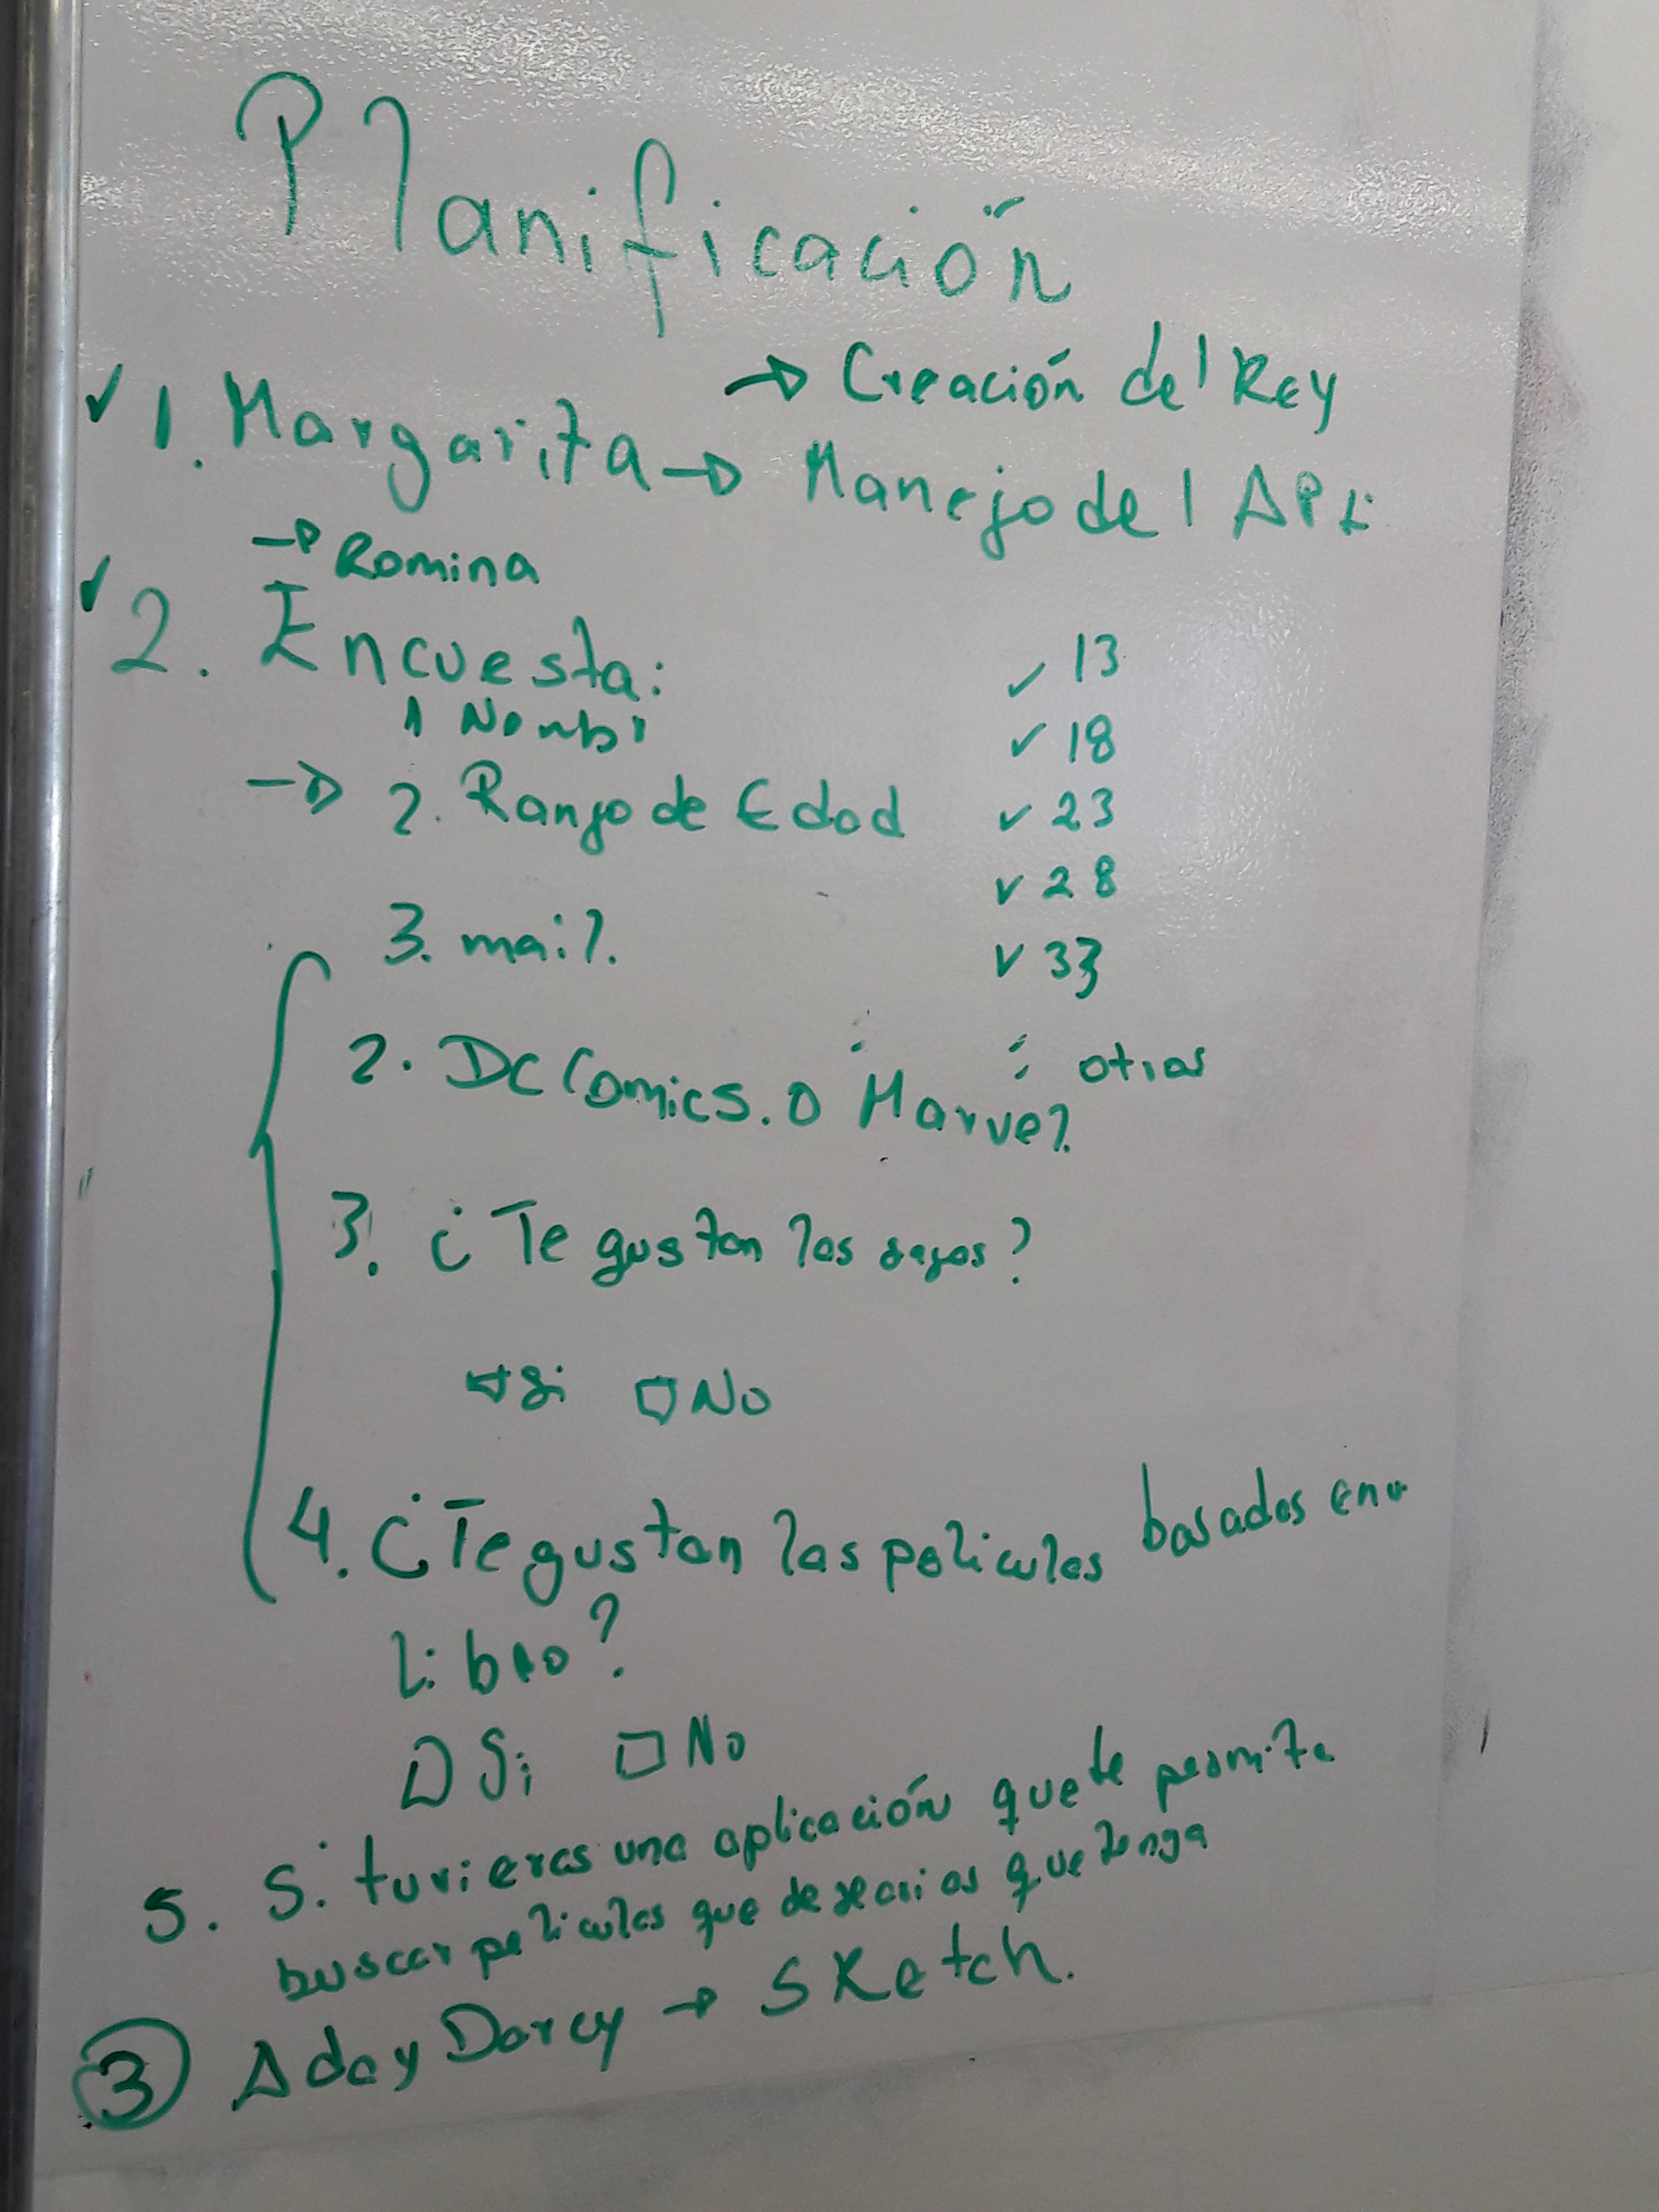 Planificación
→ Creación del Key
✓ 1. Margarita → Manejo del API
→ Romina
✓ 2. Encuesta:
1 Nombr
→ 2. Rango de Edad
✓ 13
✓ 18
✓ 23
✓ 28
✓ 33
3. mail.
2. DC Comics. o Marvel. otras
3. ¿Te gustan las sagas?
□ Si □ No
4. ¿Te gustan las peliculas basadas en
libro?
□ Si □ No
5. Si tuvieras una aplicación que te permita
buscar peliculas que desearias que tenga
3 Ada y Darcy → Sketch.